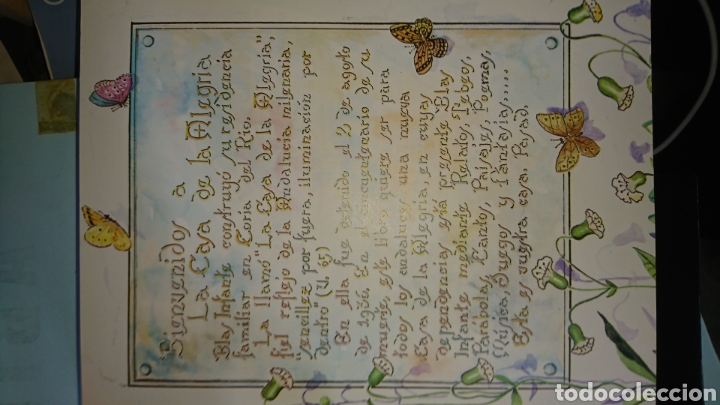 Bienvenidos a
La Casa de la Alegría
Blas Infante construyó su residencia
familiar en Coria del Río.
La llamó "La Casa de la Alegría",
fiel reflejo de la Andalucía milenaria,
"sencillez por fuera, iluminación por
dentro" (U. 65)
En ella fue detenido el 2 de agosto
de 1936. En el cincuentenario de su
muerte, este libro quiere ser para
todos los andaluces una nueva
Casa de la Alegría, en cuyas
dependencias está presente Blas
Infante mediante Relatos, Tebeos,
Parábolas, Cantos, Paisajes, Poemas,
Música, Juegos y Fantasías.....
Esta es vuestra casa. Pasad.
todocoleccion